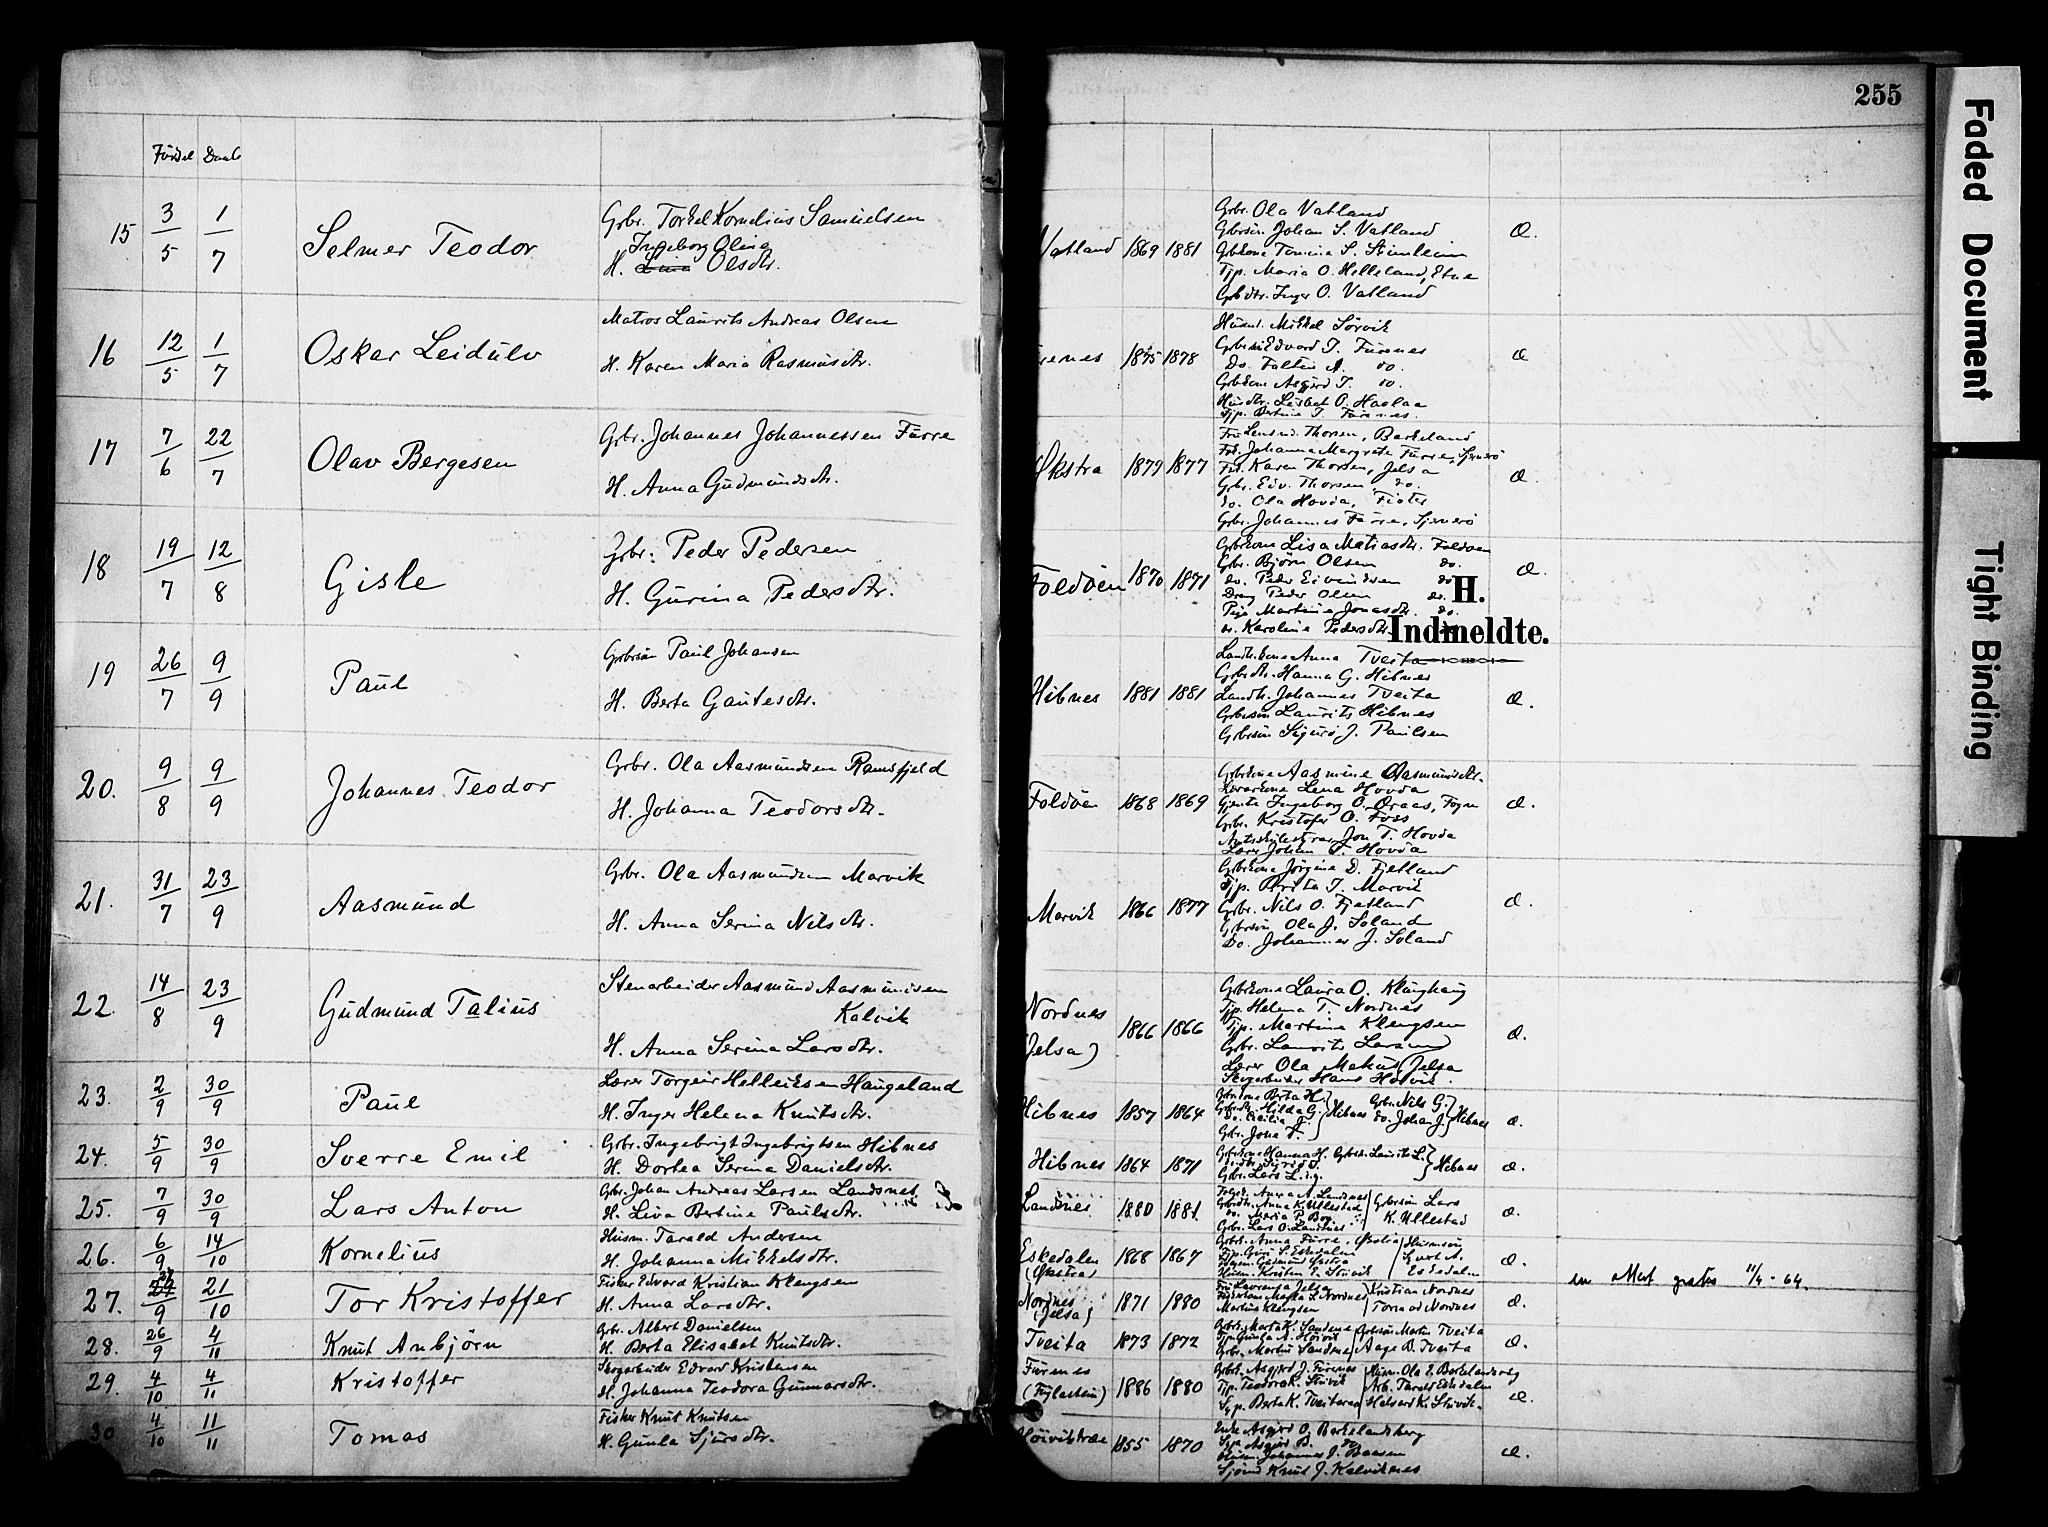 255
Faded Document
Tight Binding
H.
Indmeldte.
Fødsel Daab
15 3/5 1/7 Selmer Teodor
Gbr. Torkel Kornelius Samuelsen
Ingeborg Olina
H. Olsdtr.
Vatland 1869 1881
Gbr. Ola Vatland
Gbrsøn Johan S. Vatland
Gbrkone Tomine S. Steinleim
Tjp. Maria O. Helleland, Etne
Gbrdtr. Inger O. Vatland
D.
16 12/5 1/7 Oskar Leidulv
Matros Laurits Andreas Olsen
H. Karen Maria Rasmusdtr.
renes 1875 1878
Husm. Mikkel Sørvik
Gbrsøn Edvard T. Furenes
Do. Falten A. do.
Gbrkone Asgjerd T. do.
Husdtr. Lisbet O. Haalaa
Tjp. Bertine T. Furenes.
D
17 7/6 22/7 Olav Bergesen
Gbr. Johannes Johannessen Furre
H. Anna Gudmundsdtr.
Økstra 1879 1877
Fru Lensm. Thorsen, Barkeland
Frk. Johanna Margrete Furre, Sjernerø
Frk. Karen Thorsen, Jelsa
Gbr. Edv. Thorsen do.
do. Ola Hovda, Fister
Gbr. Johannes Furre, Sjernerø
D.
18 19/7 12/8 Gisle
Gbr. Peder Pedersen
H. Gurina Pedersdtr.
Foldøen 1870 1871
Gbrkone Lisa Matiasdtr. Foldøen
Gbr. Bjørn Olsen do.
do. Peder Eivindsen do.
Dreng Peder Olsen do.
Pige Martine Jonasdtr. do.
do. Karoline Pedersdtr.
D.
19 26/7 9/9 Paul
Gbrsøn Paul Johansen
H. Berta Gautesdtr.
Hibnes 1881 1881
Landh.kone Anna Tveita
Gbrdtr. Hanna G. Hibnes
Landh. Johannes Tveita
Gbrsøn Laurits Hibnes
Gbrsøn Sigurd J. Paulsen
D.
20. 9/8 9/9 Johannes Teodor
Gbr. Ola Aasmundsen Ramsfjeld
H. Johanna Teodorsdtr.
Foldøen 1868 1869
Gbrkone Aasmine Aasmundsdtr.
Lærerkone Lena Hovda
Gjente Ingeborg O. Øraas, Fogn
Gbr. Kristofer O. Foss
Amtsskolestyrer Jon T. Hovda
Lærer Johan T. Hovda
D.
21. 31/7 23/9 Aasmund
Gbr. Ola Aasmundsen Marvik
H. Anna Serina Nilsdtr.
Marvik 1866 1877
Gbrkone Jørgine D. Fjetland
Tjp. Brita T. Marvik
Gbr. Nils O. Fjetland
Gbrsøn Ola J. Soland
Do. Johannes J. Soland
D.
22. 14/8 23/9 Gudmund Talius
Stenarbeider Aasmund Aasmundsen
Kalvik
H. Anna Serina Larsdtr.
Nordnes
(Jelsa) 1866 1866
Gbrkone Laura O. Klunghaug
Tjp. Helena T. Nordnes
Tjp. Martina Klengsen
Gbr. Laurits Larsen
Lærer Ola Mehus, Jelsa
Skogarbeider Hans Høivik.
D.
23. 2/9 30/9 Paul
Lærer Torgeir Helleiksen Haugeland
H. Inger Helena Knutsdtr.
Hibnes 1857 1864
Gbrkone Berta H.
Gbrdtr. Hilda G. Hibnes Gbr. Nils G.
do. Cecilia J. do. Johan J. Hibnes
Gbr. Jone T.
D.
24. 5/9 30/9 Sverre Emil
Gbr. Ingebrigt Ingebrigtsen Hibnes
H. Dortea Serina Danielsdtr.
Hibnes 1864 1871
Gbrkone Hanna H. Gbrsøn Laurits L.
Hibnes
Gbr. Lars L.
D.
25. 7/9 30/9 Lars Anton
Gbr. Johan Andreas Larsen Landsnes
H. Liva Bertine Paulsdtr.
Landsnes 1880 1881
Anna A. Landsnes Gbrsøn Lars
Gbrdtr. Anna K. Ullestad K. Ullestad
do. Maria P. Bog
Gbr. Lars O. Landsnes
D.
26. 6/9 14/10 Kornelius
Husm. Tarald Andersen
H. Johanna Mikkelsdtr.
Eskedalen
(Økstra) 1868 1867
Gbrk. Anna Furre, Økstra Husmsøn
Tjp. Guri S. Eskedalen Sjurt A.
Ungm. Gudmund Økstra Eskedalen
Husm. Kristen E. Stuvik
D.
27. 21/10 Tor Kristoffer
9
Fisker Edvard Kristian Klengsen
H. Anna Larsdtr.
Nordnes
(Jelsa) 1871 1880
Fru Laurensa Jelsa Kristian Nordnes
Marta L. Nordnes Tormod Nordnes
Martin Klengsen
D.
en Attest gratis 11/4 - 64.
28. 26/9 4/11 Knut Anbjørn
Gbr. Albert Danielsen
H. Berta Elisabet Knutsdtr.
Tveita 1873 1872
Gbrk. Marta K. Sandene Gbrsøn Martin Tveita
Tjp. Gunla A. Høivik Aage B. Tveita
Gbr. Martin Sandene
D.
29. 4/10 4/11 Kristoffer
Skogarbeider Edvard Kristensen
H. Johanna Teodora Gunnarsdtr.
Furenes
(Fylastein) 1886 1880
Gbrk. Asgjerd J. Furenes Husm. Ola E. Barkelandsberg
Tjp. Teodora K. Stuvik Arb. Tarald Eskedalen
Tjp. Berta K. Tveiteraa Halvard K. Stuvik.
D.
30 4/10 11/11 Tomas
Fisker Knut Knutsen
H. Gunla Sjursdtr.
Høiviktræe 1855 1870
Enke Asgjerd O. Barkelandsberg
Tjp. Asgjerd B. do
Husm. Johannes J. Baasen
Sjømd Knut J. Kalviknes
D.